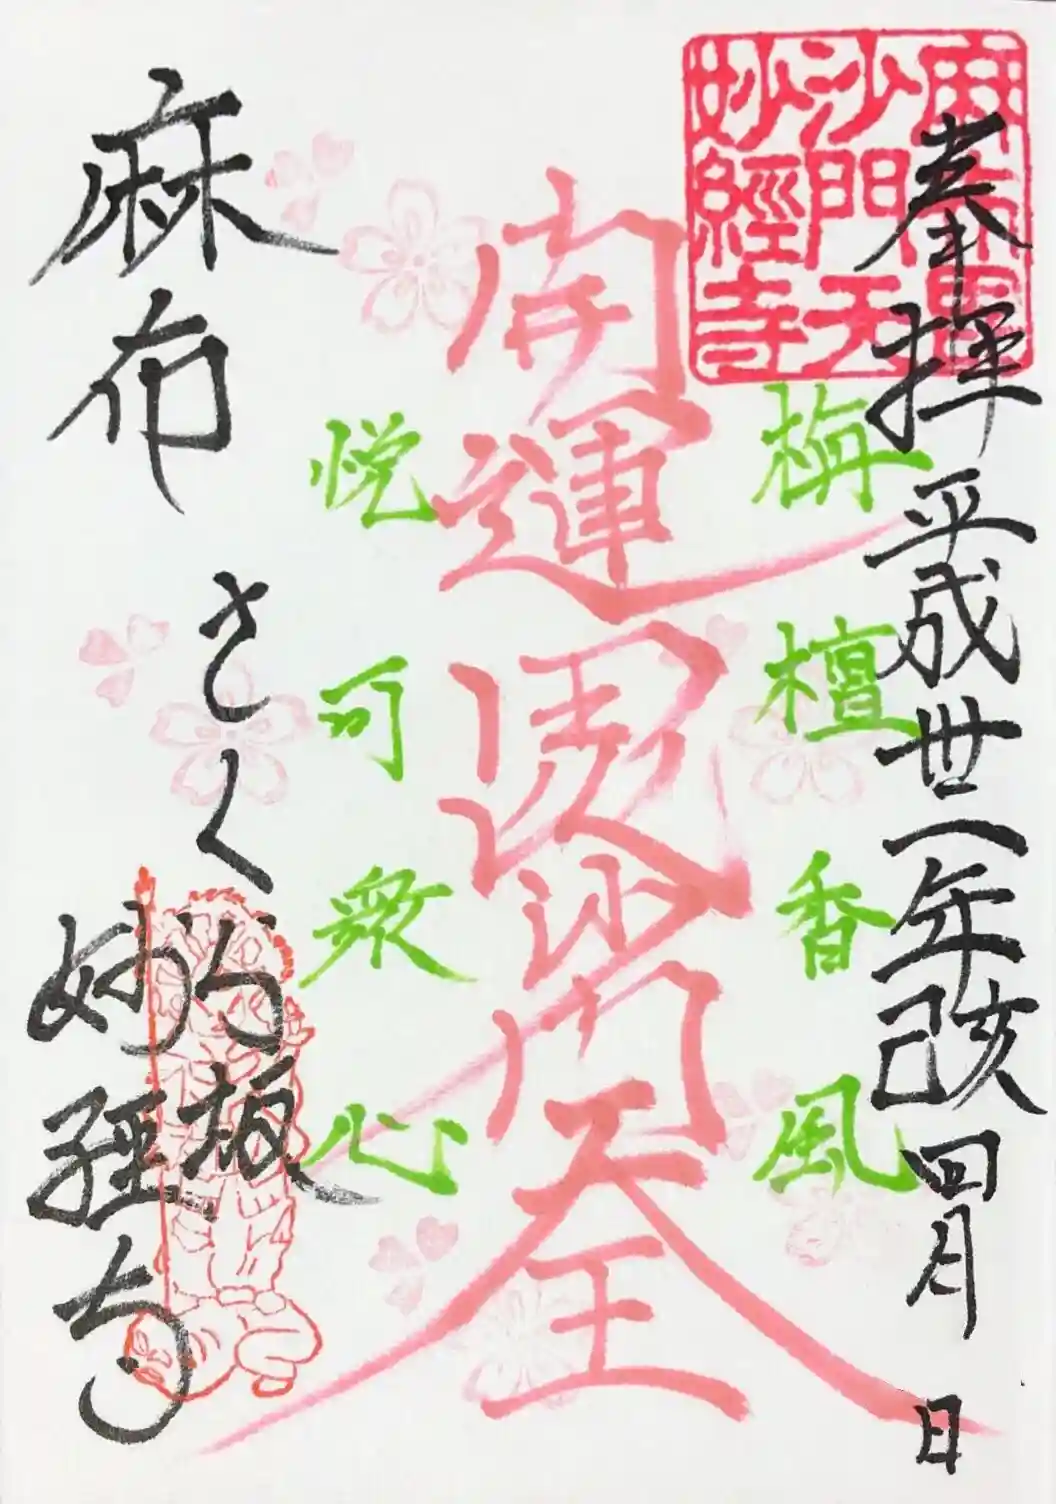 麻布毘
沙門天
妙經寺
奉拝 平成丗一年己亥 四月 日
栴檀香風
開運毘沙門天王
悦可衆心
麻布 さくら坂
妙経寺